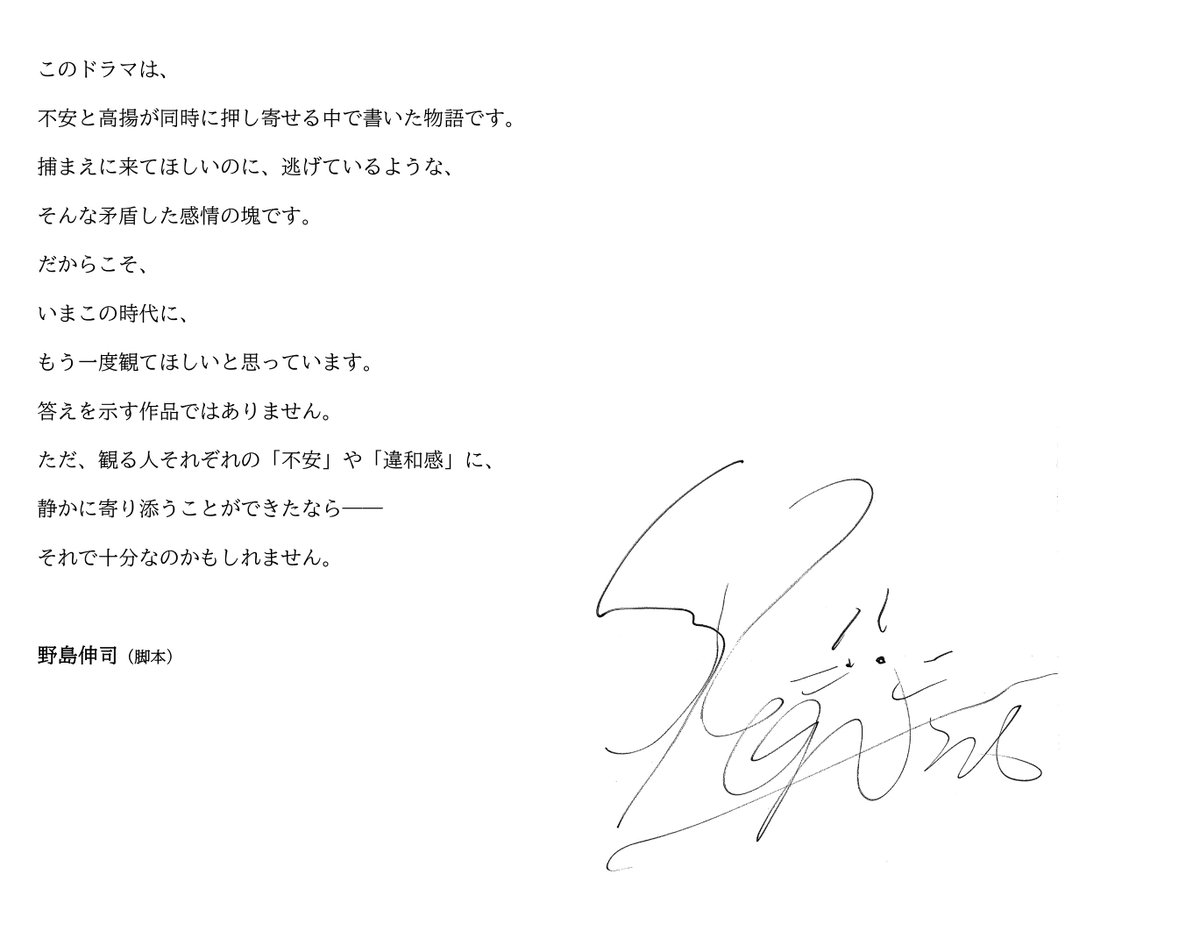 このドラマは、
不安と高揚が同時に押し寄せる中で書いた物語です。
捕まえに来てほしいのに、逃げているような、
そんな矛盾した感情の塊です。
だからこそ、
いまこの時代に、
もう一度観てほしいと思っています。
答えを示す作品ではありません。
ただ、観る人それぞれの「不安」や「違和感」に、
静かに寄り添うことができたなら――
それで十分なのかもしれません。
野島伸司（脚本）